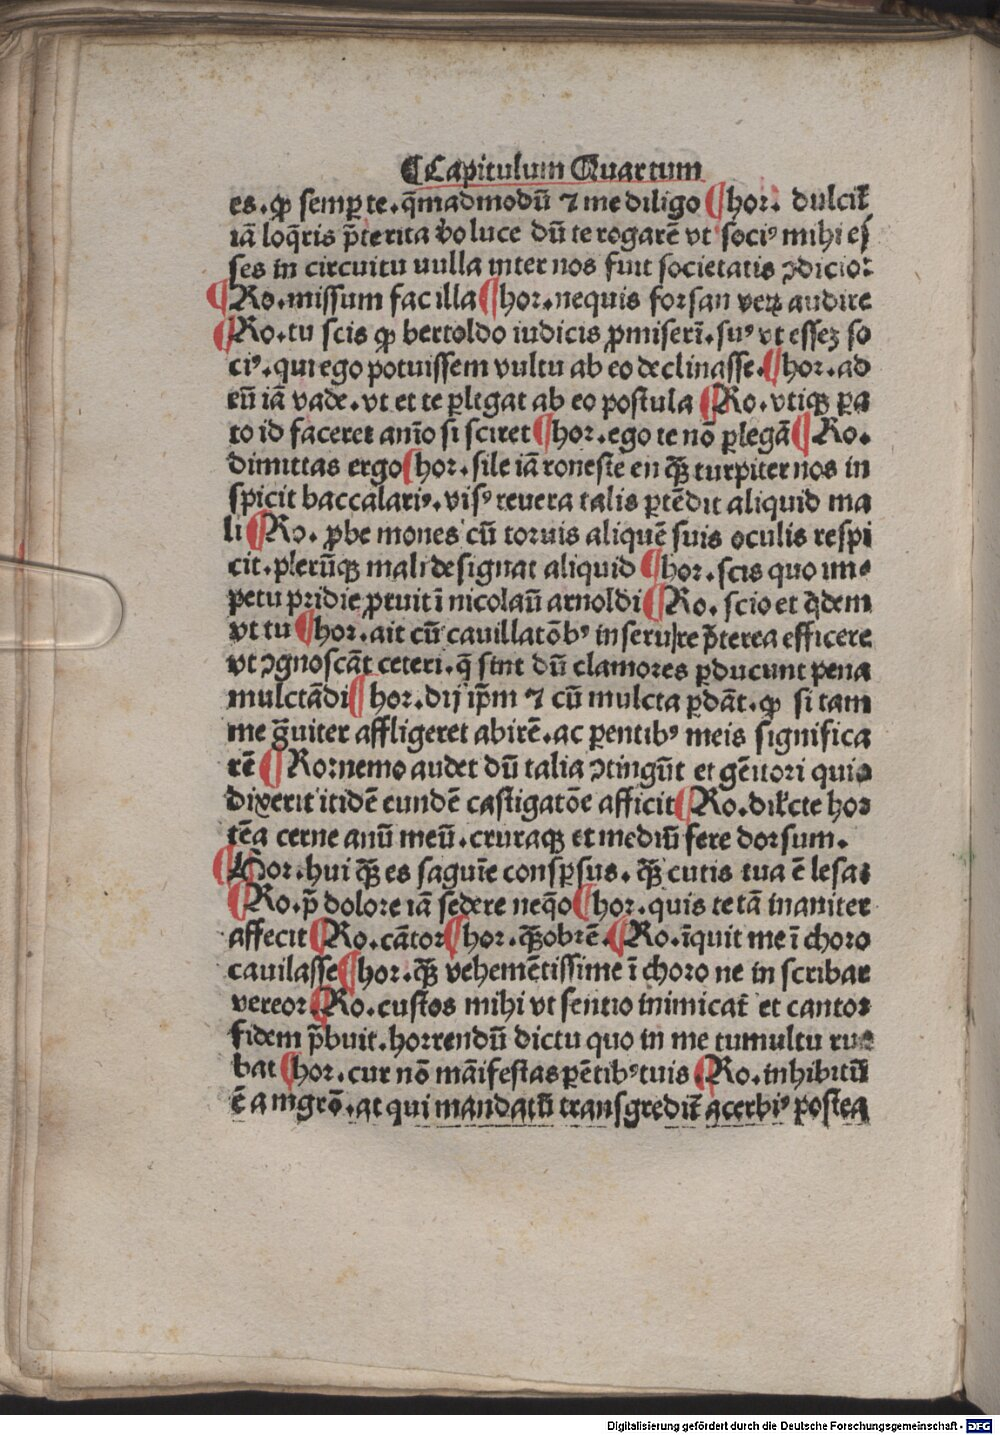 ¶Capitulum Quartum
es. ꝙ semꝑ te. q̄madmodū ⁊ me diligo ¶hor. dulcit̄
iā loq̄ris p̄terita v̄o luce dū te rogarē vt soci⁹ mihi eſ
ses in circuitu uulla inter nos fuit societatis ꝯdicio:
¶Ro. missum fac illa ¶hor. nequis forsan verꝫ audire
¶Ro. tu scis ꝙ bertoldo iudicis ꝓmiserī. su⁹ vt esseꝫ so
ci⁹. qui ego potuissem vultu ab eo declinasse. ¶hor. ad
eū iā vade. vt et te ꝑlegat ab eo postula ¶Ro. vtiqꝫ ꝑa
to id faceret anīo si sciret ¶hor. ego te nō ꝑlegā ¶Ro.
dimittas ergo ¶hor. sile iā roneste en qꝫ̄ turpiter nos in
spicit baccalari⁹. vis⁹ reuera talis ꝑtēdit aliquid ma
li ¶Ro. ꝓbe mones cū toruis aliquē suis oculis respi
cit. plerūqꝫ mali designat aliquid ¶hor. scis quo im⸗
petu pridie ꝓruit ī nicolaū arnoldi ¶Ro. scio et q̇dem
vt tu ¶hor. ait cū cauillatōb⁹ inseruire p̄terea efficere
vt ꝯgnoscāt ceteri. q̄ sint dū clamores ꝑducunt pena
mulctādi ¶hor. dij ip̄m ⁊ cū mulcta ꝑdāt. ꝙ si tam
me g̃uiter affligeret abirē. ac ꝑentib⁹ meis significa
rē ¶Ro: nemo audet dū talia ꝯtingūt et gēitori quia
dixerit itidē eundē castigatōe afficit ¶Ro. dil̄cte hor
tēa cerne anū meū. cruraqꝫ et mediū fere dorsum.
¶Hor. hui qꝫ̄ es saguīe consꝑsus. qꝫ̄ cutis tua ē lesa:
¶Ro. p̄ dolore iā sedere neq̄o ¶hor. quis te tā inaniter
affecit ¶Ro. cātor ¶hor. qꝫ̄obrē. ¶Ro. īquit me ī choro
cauilasse ¶hor. qꝫ̄ vehemētissime ī choro ne in scribar
vereor ¶Ro. custos mihi vt sentio inimicat̄ et cantor
fidem p̄buit. horrendū dictu quo in me tumultu rue
bat ¶hor. cur nō māifestas ꝑētib⁹ tuis ¶Ro. inhibitū
ē a mgrō. at qui mandatū transgredit̄ acerbi⁹ postea
Digitalisierung gefördert durch die Deutsche Forschungsgemeinschaft - DFG